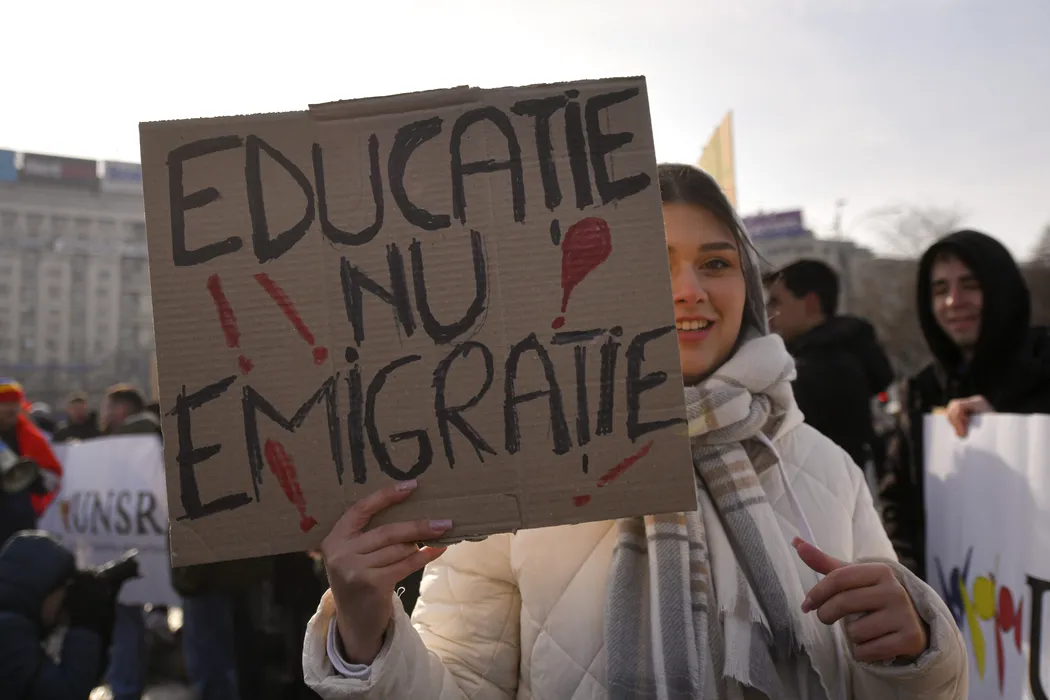 EDUCAȚiE
!! NU !
EMiGRAȚiE
! !
UNSR